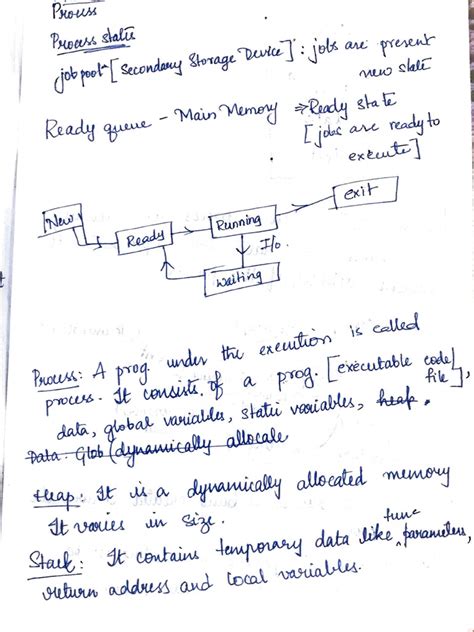 Process
Process state
job pool - [Secondary Storage Device] : jobs are present
new state
Ready queue - Main Memory ⇒ Ready state
[jobs are ready to
execute]
New
Ready
Running
exit
I/o.
waiting
Process: A prog. under the execution is called
process. It consists of a prog. [executable code/
file],
data, global variables, static variables, heap.
Data: Glob (dynamically allocale
Heap: It is a dynamically allocated memory
It varies in size.
func
Stack: It contains temporary data like parameters,
return address and local variables.